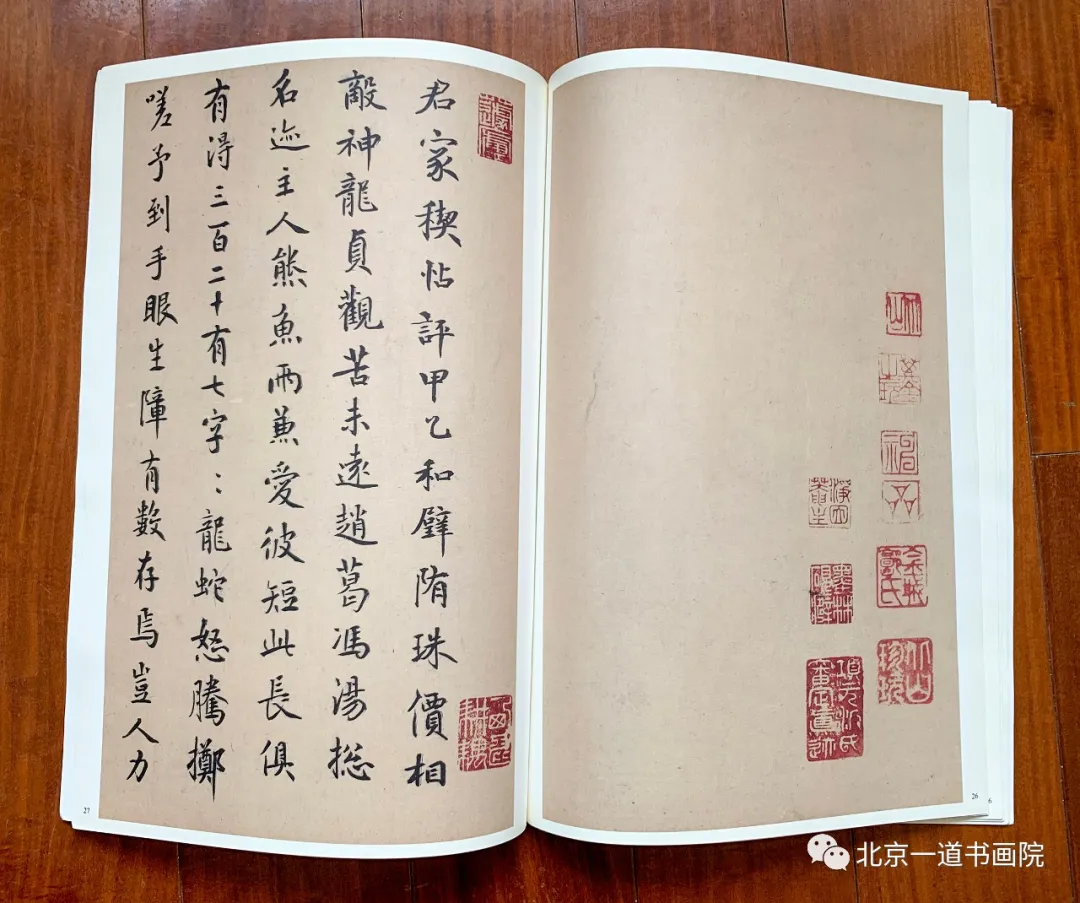 君家稧帖評甲乙和璧隋珠價相
敵神龍貞觀苦未遠趙葛馮湯総
名迹主人熊魚兩兼愛彼短此長俱
有得三百二十有七字:龍蛇怒騰擲
嗟予到手眼生障有數存焉豈人力
項元汴氏審定真迹
墨林硯癖
27
26
北京一道书画院